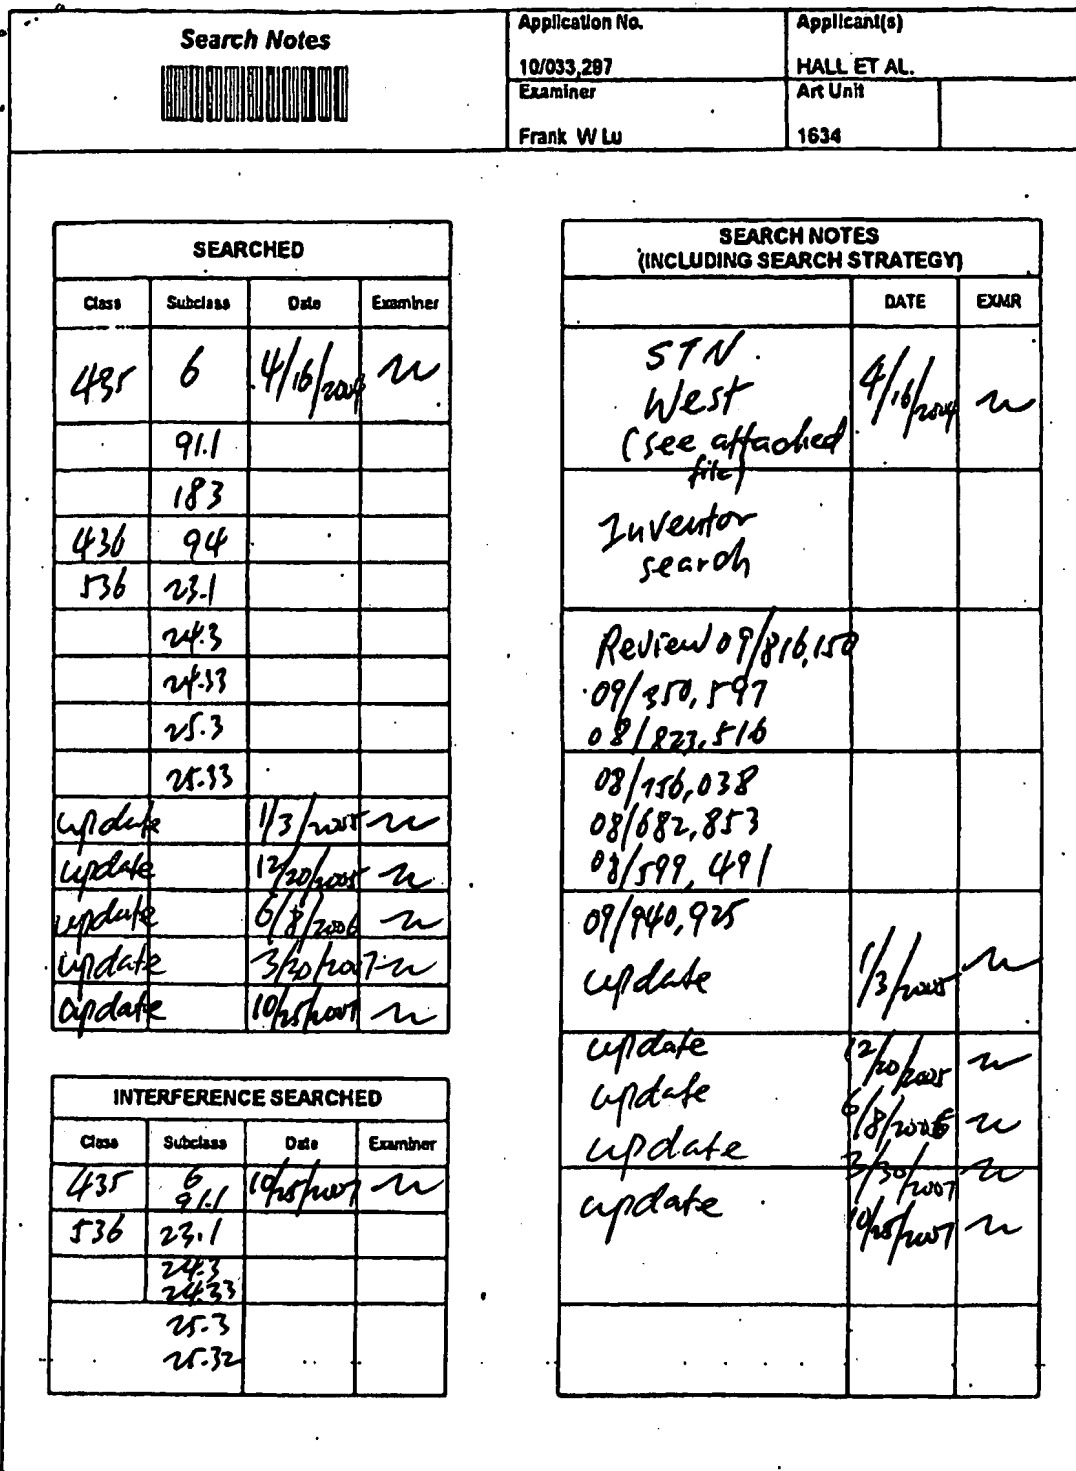 Search Notes
Application No.
Applicant(s)
10/033,297
HALL ET AL.
Examiner
Art Unit
Frank W Lu
1634
SEARCHED
Class Subclass Date Examiner
435 6 4/16/2004
91.1
183
436 94
536 23.1
24.3
24.33
25.3
25.33
update 1/3/2005
update 12/20/2005
update 6/8/2006
update 3/30/2007
update 10/25/2007
INTERFERENCE SEARCHED
Class Subclass Date Examiner
435 6 10/25/2007
91.1
536 23.1
24.3
24.33
25.3
25.32
SEARCH NOTES
(INCLUDING SEARCH STRATEGY)
DATE EXMR
STN
West 4/16/2004
(see attached
file)
Inventor
search
Review 09/816,150
09/350,597
08/823,516
08/756,038
08/682,853
08/599,491
09/940,925
update 1/3/2005
update 12/20/2005
update 6/8/2006
update 3/30/2007
update 10/25/2007